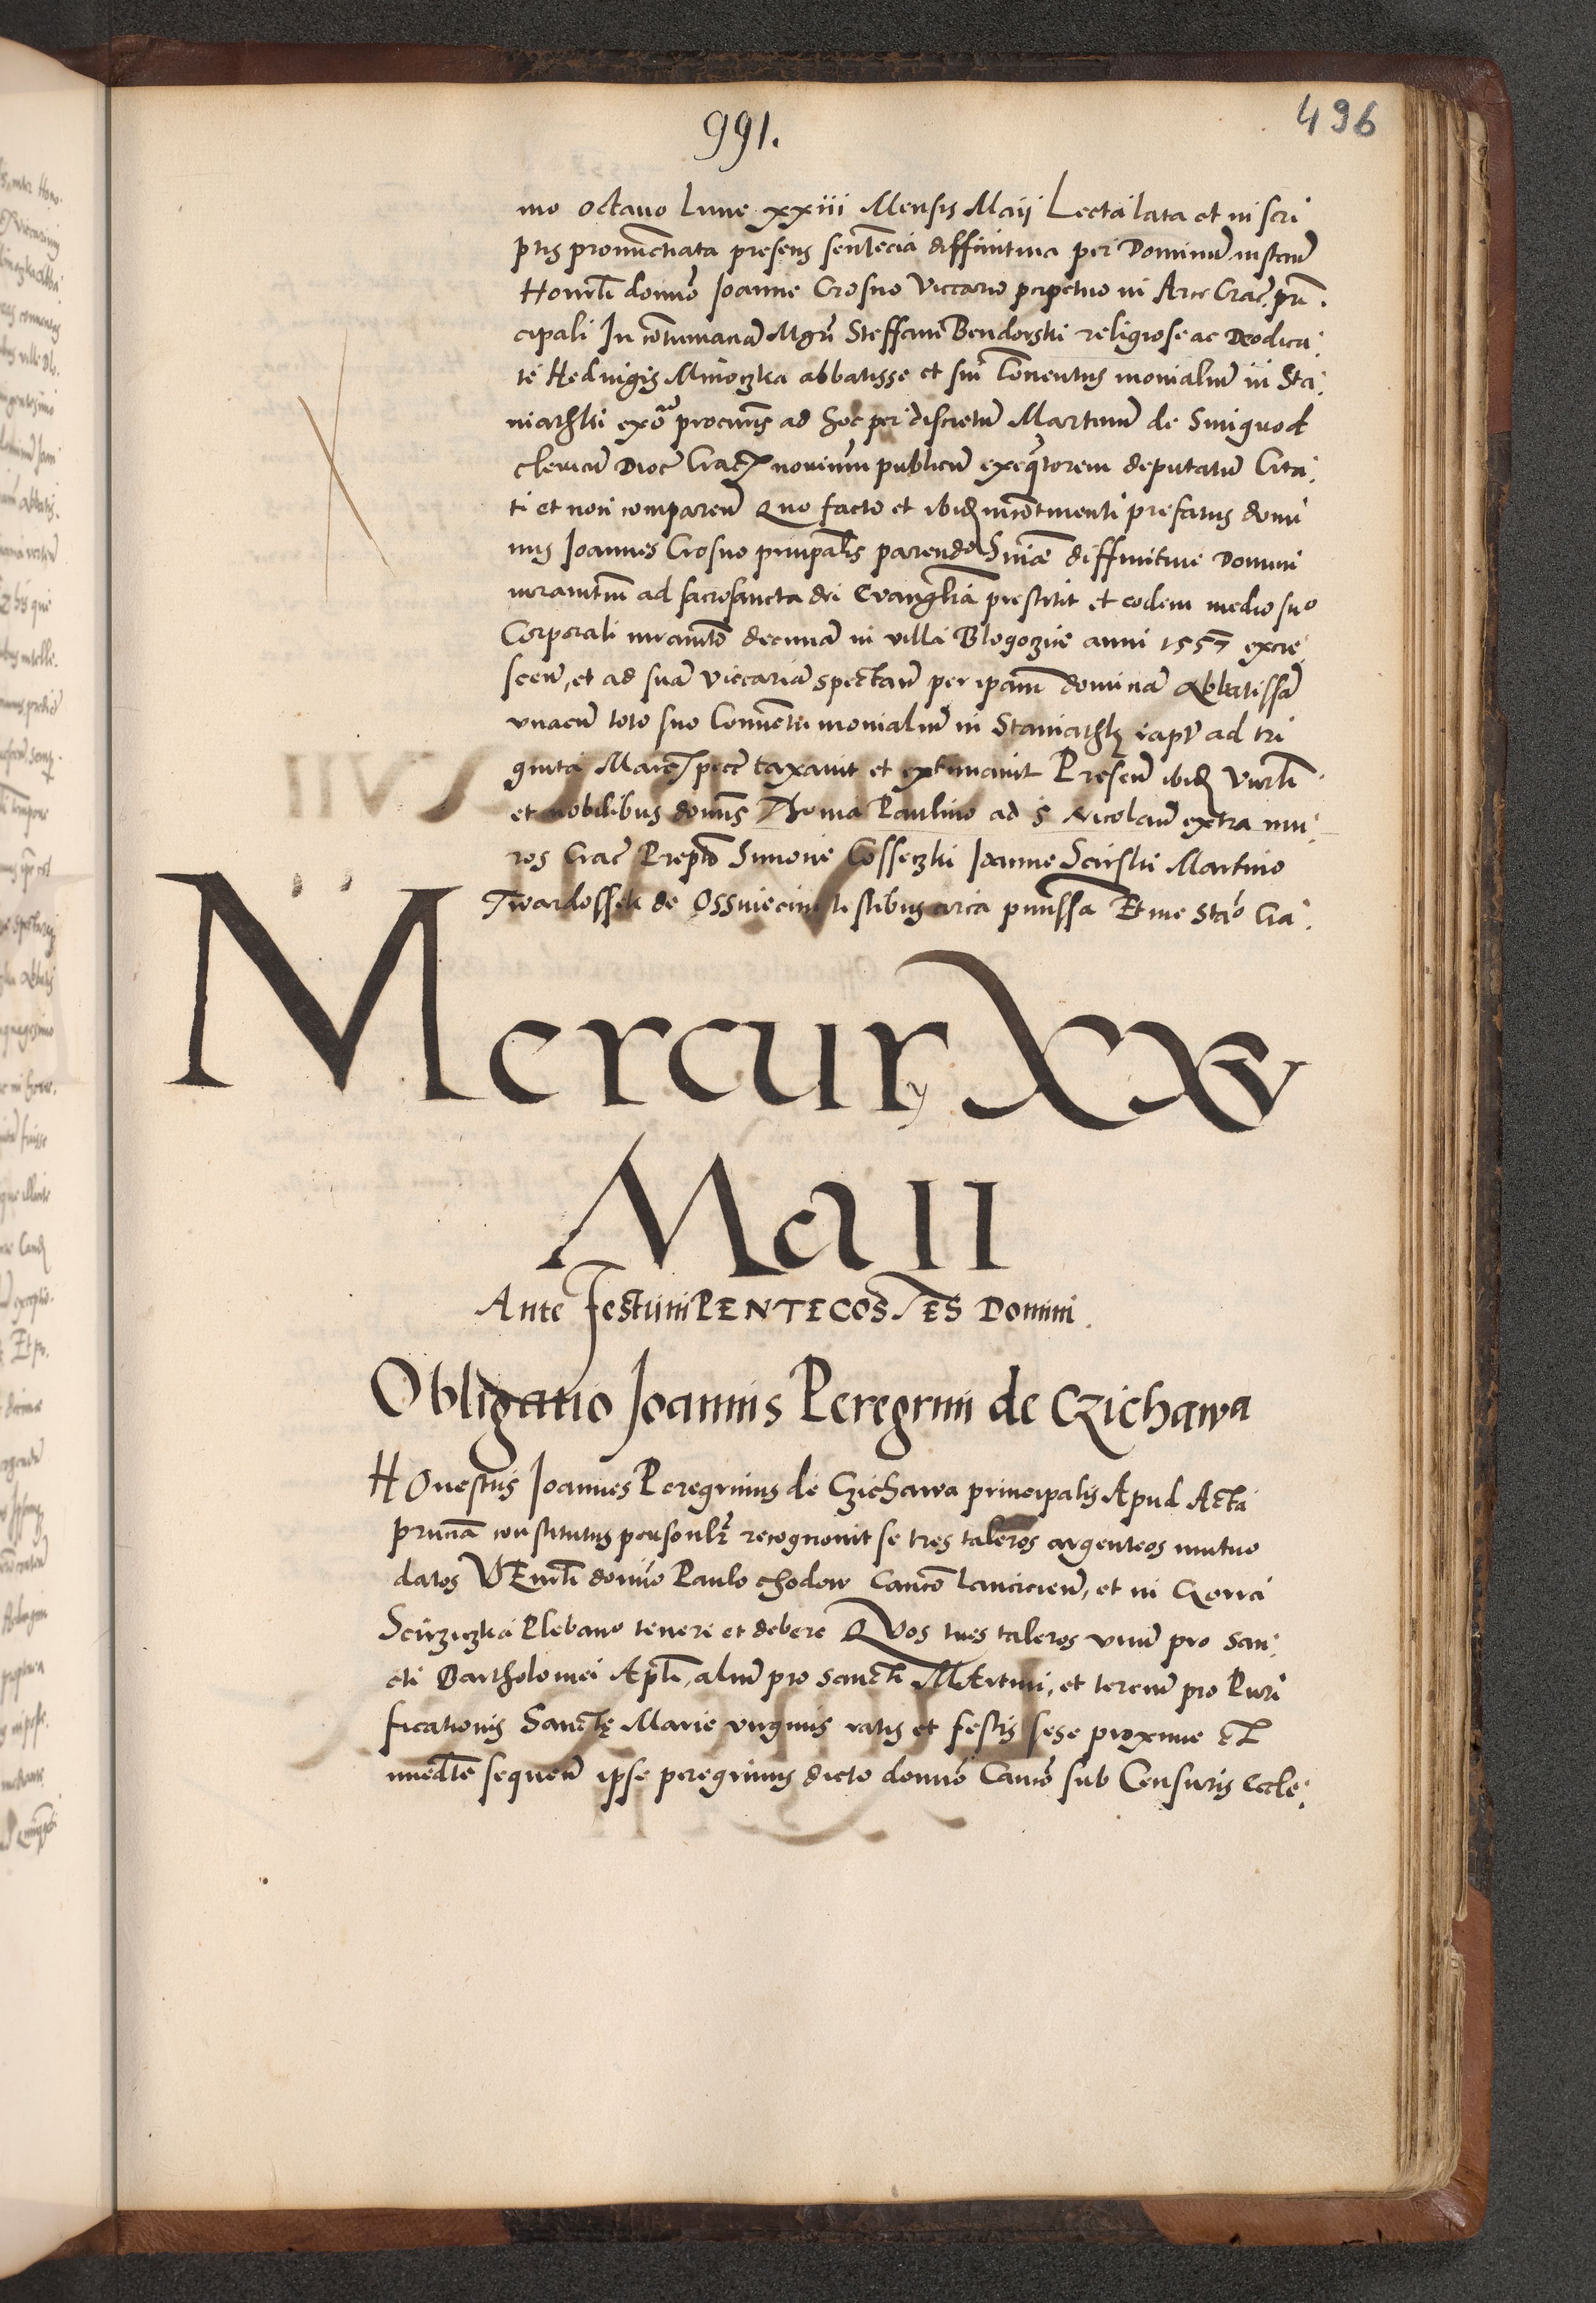 991.
496
mo octauo Lune xxiii Mensis Maij Lecta lata et in scri
ptis pronunctiata presens sentēcia diffinitiua per Dominū instan̄
Honorᵇˡⁱ domīo Joanne Crosno Viccario perpetuo in Arce Crac̄ prin
cipali In cōtumaciam Mgrī Steffani Bendorski religiose ac Deodica
te Heduigis abbatisse et sui Conuentus monialiū in Sta
niathki ad hoc per discretū Martinū de
clericū Dioc̄ Crac̄ publicū executorem deputatū Cita
ti et non comparen̄ Quo facto et ibidē incōtinenti prefatus domi
nus Joannes Crosno principalis parendo Snīæ diffinitiue Domini
iuramētum ad sacrosancta dei Euanglia prestitit et eodem medio suo
Corporali iuramēto decimā in villa Blogozicze anni 1557 excre
scen̄, et ad suā Viccariā spectan̄ per ipsam dominā Abbatissā
vnacū toto suo Conuētu monialiū in Staniathki rapt̄ ad tri
ginta Marc̄ pecc̄ taxauit et extimauit Presen̄ ibidē
et nobilibus domīs Thoma Paulino ad S Nicolaū extra mu
ros Crac̄ Prepto Simone Cosseczki Joanne Scirski Martino
Twardossek de Ossuiecim testibus circa premissa Et me Stāo Cra
Mercurij XXV
Maii
Ante Festum PENTECOSTES Domini.
Obligatio Joannis Peregrini de Czichawa
HOnestus Joannes Peregrinus de Czichawa principalis Apud Acta
constitutus personlr̄ recognouit se tres taleros argenteos mutuo
datos VEnrlī domīo Paulo chodow Canco Lancicien̄, et in Gorra
Scirziczka Plebano tenere et debere QVos tres taleros vnū pro San
cti Bartholomei Apli, aliū pro sancti MArtini, et terciū pro Puri
ficationis Sanctę Marie virginis ratis et festis sese proxime et
imedte sequen̄ ipse peregrinus dicto domīo Canco sub Censuris Eccle